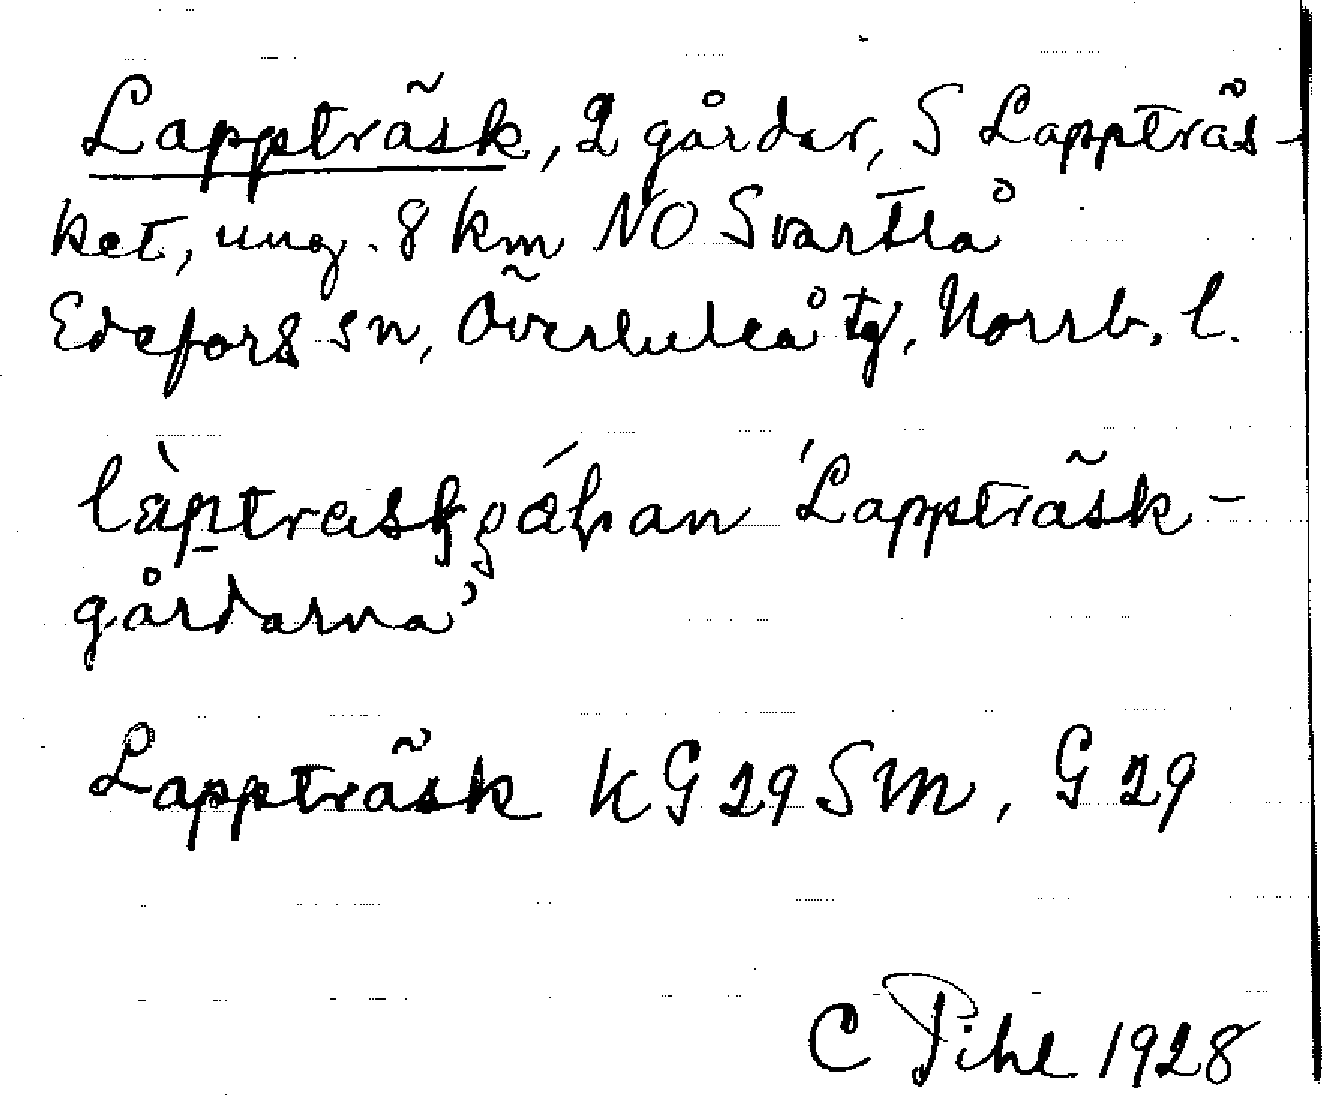 Lappträsk, 2 gårdar, S Lappträs-
ket, ung. 8 km NO Svartlå
Edefors sn, Överluleå tg, Norrb. l.
'Lappträsk-
gårdarna'
Lappträsk KG 29 SM, G 29
C Pihl 1928